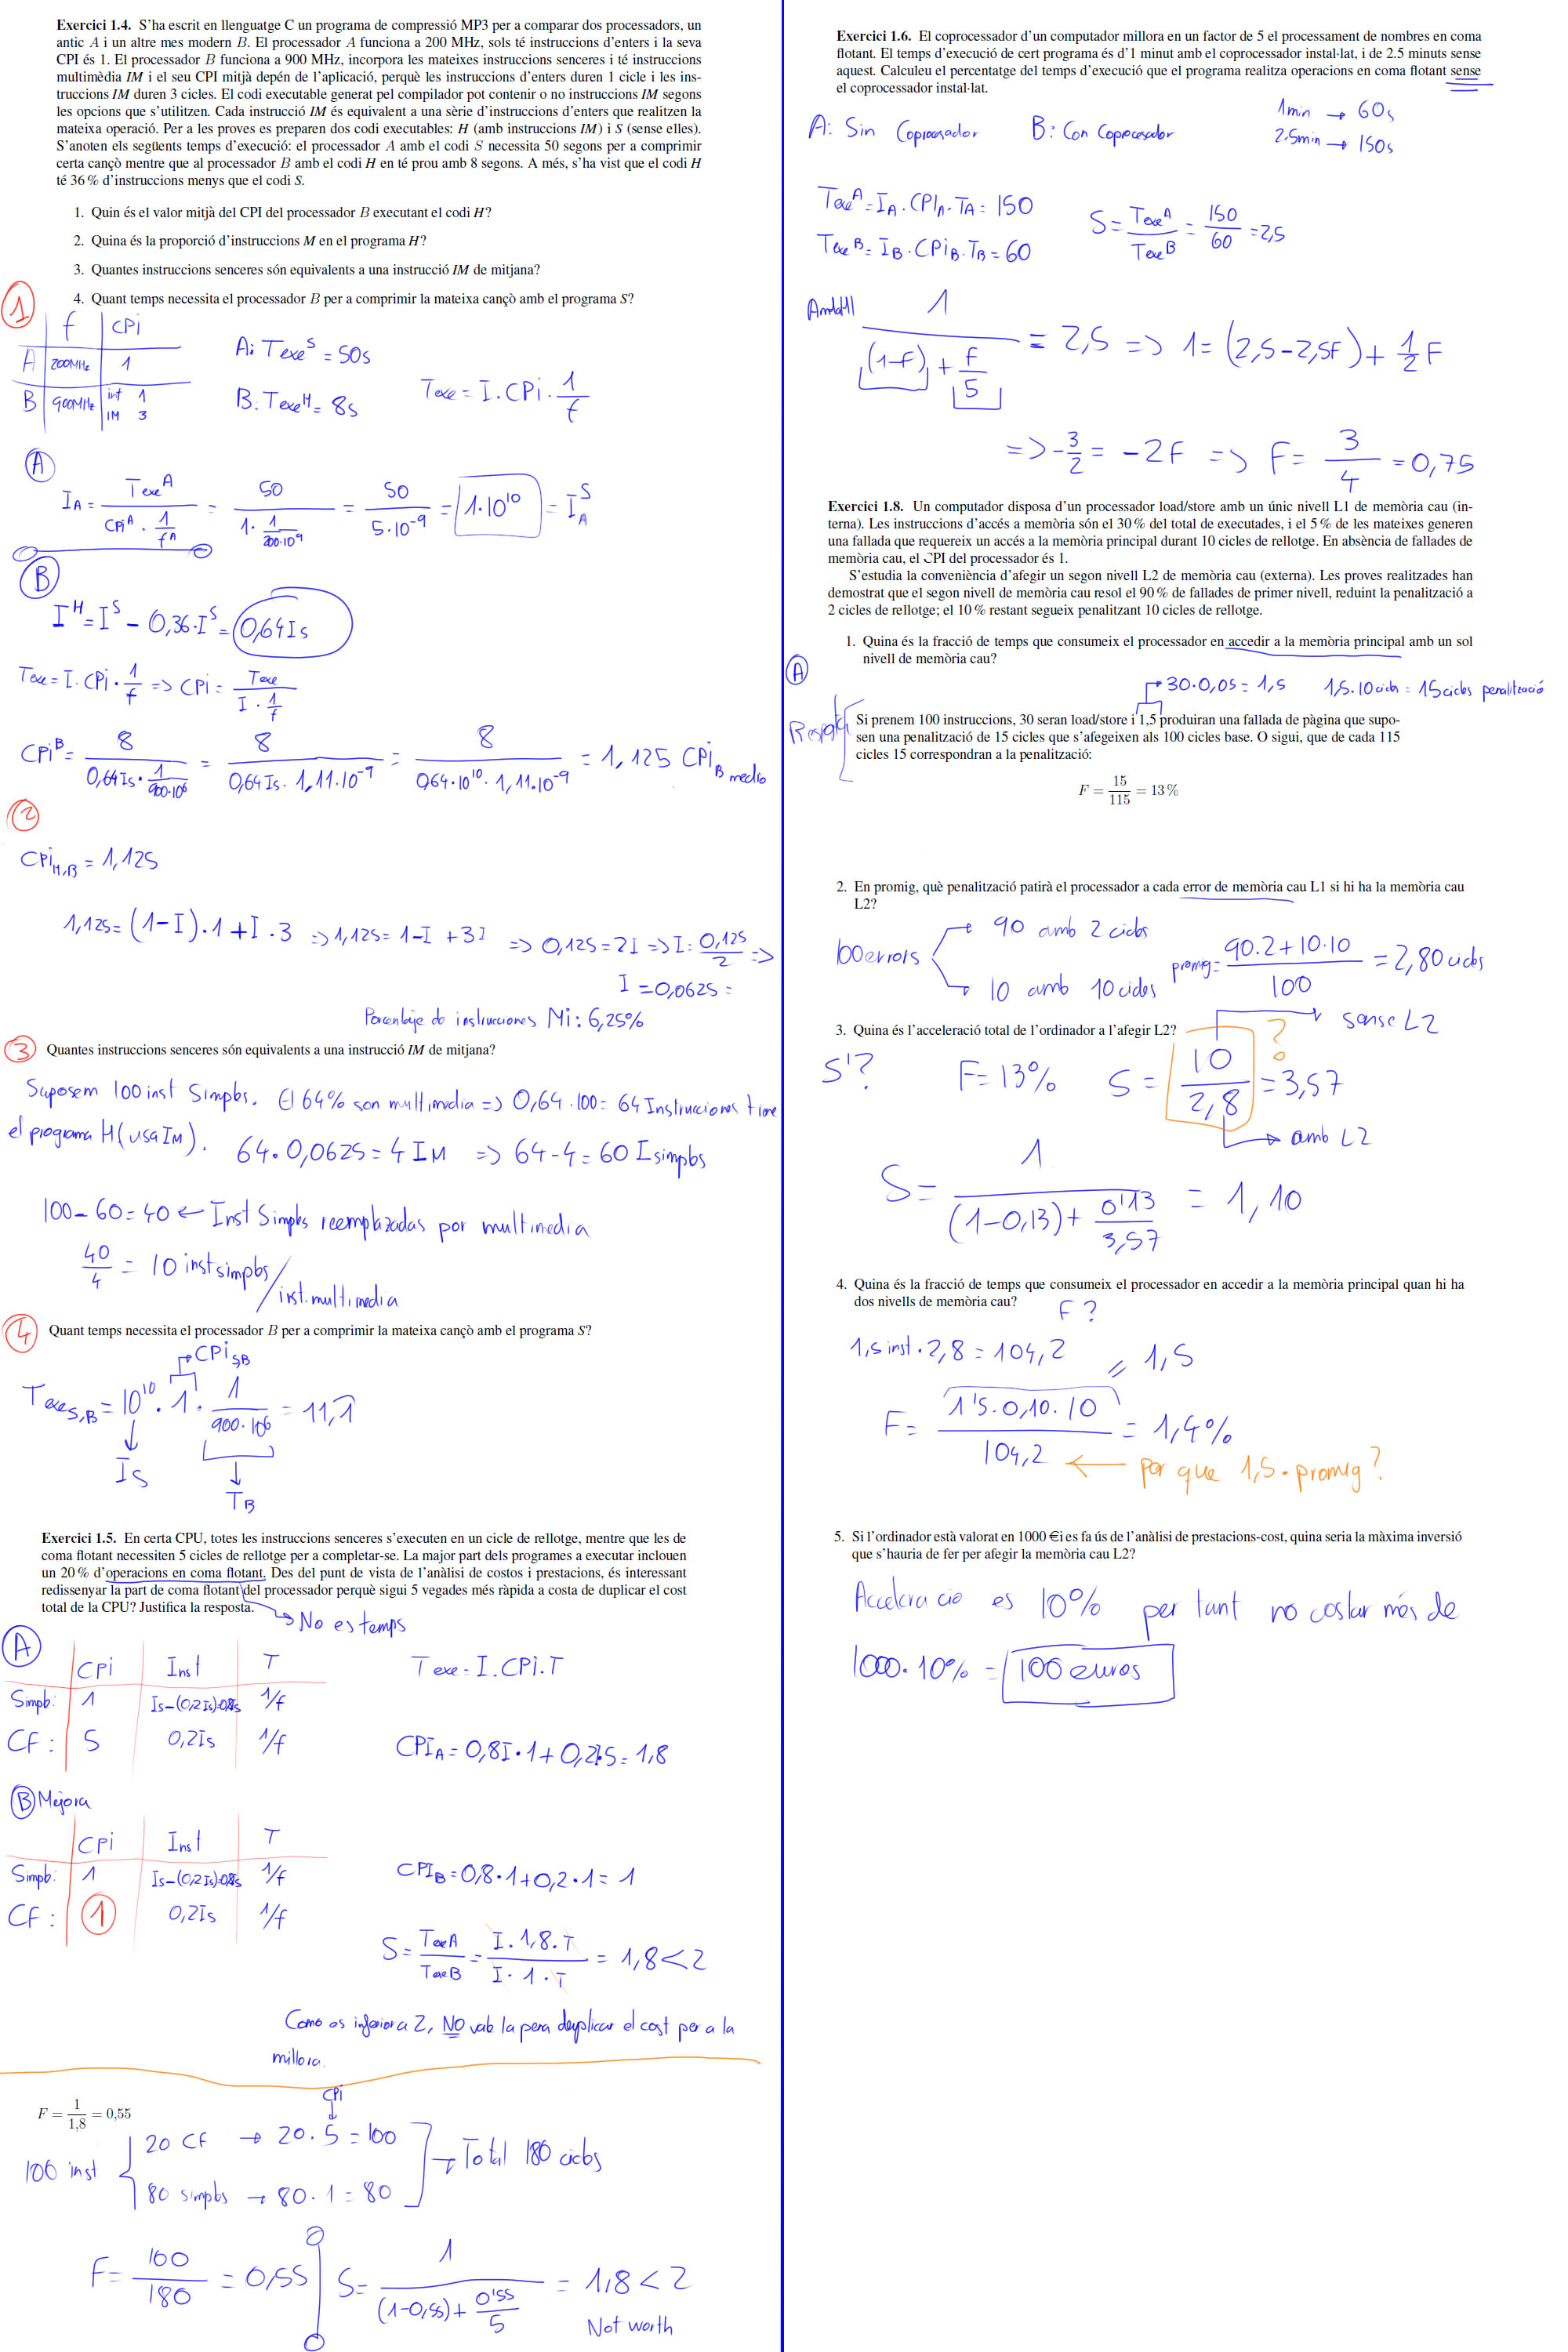 Exercici 1.4. S'ha escrit en llenguatge C un programa de compressió MP3 per a comparar dos processadors, un
antic A i un altre mes modern B. El processador A funciona a 200 MHz, sols té instruccions d'enters i la seva
CPI és 1. El processador B funciona a 900 MHz, incorpora les mateixes instruccions senceres i té instruccions
multimèdia IM i el seu CPI mitjà depén de l'aplicació, perquè les instruccions d'enters duren 1 cicle i les ins-
truccions IM duren 3 cicles. El codi executable generat pel compilador pot contenir o no instruccions IM segons
les opcions que s'utilitzen. Cada instrucció IM és equivalent a una sèrie d'instruccions d'enters que realitzen la
mateixa operació. Per a les proves es preparen dos codi executables: H (amb instruccions IM) i S (sense elles).
S'anoten els següents temps d'execució: el processador A amb el codi S necessita 50 segons per a comprimir
certa cançò mentre que al processador B amb el codi H en té prou amb 8 segons. A més, s'ha vist que el codi H
té 36 % d'instruccions menys que el codi S.
1. Quin és el valor mitjà del CPI del processador B executant el codi H?
2. Quina és la proporció d'instruccions M en el programa H?
3. Quantes instruccions senceres són equivalents a una instrucció IM de mitjana?
4. Quant temps necessita el processador B per a comprimir la mateixa cançò amb el programa S?
1
f CPi
A 200MHz 1
B 900MHz int 1
IM 3
A: Texe^S = 50s
B: Texe^H = 8s
Texe = I . CPi . 1/f
A
I_A = Texe^A / (CPi^A . 1/f^A) = 50 / (1 . 1/200·10^9) = 50 / 5·10^-9 = 1·10^10 = I_A^S
B
I^H = I^S - 0,36·I^S = 0,64Is
Texe = I . CPi · 1/f => CPi = Texe / (I · 1/f)
CPi^B = 8 / (0,64Is · 1/900·10^6) = 8 / (0,64Is · 1,11·10^-9) = 8 / (0,64·10^10 · 1,11·10^-9) = 1,125 CPi B medio
2
CPi H,B = 1,125
1,125 = (1-I).1 + I . 3 => 1,125 = 1-I + 3I => 0,125 = 2I => I = 0,125/2 =>
I = 0,0625 =
Porcentaje de instrucciones Mi: 6,25%
3 Quantes instruccions senceres són equivalents a una instrucció IM de mitjana?
Suposem 100 inst Simples. El 64% son multimedia => 0,64·100 = 64 Instrucciones tiene
el programa H (usa IM). 64·0,0625 = 4 IM => 64-4 = 60 I simples
100 - 60 = 40 ← Inst Simples reemplazadas por multimedia
40/4 = 10 inst simples / inst. multimedia
4 Quant temps necessita el processador B per a comprimir la mateixa cançò amb el programa S?
CPi S,B
Texe S,B = 10^10 . 1 . 1/900·10^6 = 11,1
Is
T_B
Exercici 1.5. En certa CPU, totes les instruccions senceres s'executen en un cicle de rellotge, mentre que les de
coma flotant necessiten 5 cicles de rellotge per a completar-se. La major part dels programes a executar inclouen
un 20 % d'operacions en coma flotant. Des del punt de vista de l'anàlisi de costos i prestacions, és interessant
redissenyar la part de coma flotant del processador perquè sigui 5 vegades més ràpida a costa de duplicar el cost
total de la CPU? Justifica la resposta.
No es temps
A
CPi Inst T
Simple: 1 Is-(0,2Is)=0,8Is 1/f
CF: 5 0,2Is 1/f
Texe = I . CPi . T
CPI_A = 0,8I·1 + 0,2I·5 = 1,8
B Mejora
CPi Inst T
Simple: 1 Is-(0,2Is)=0,8Is 1/f
CF: 1 0,2Is 1/f
CPI_B = 0,8·1 + 0,2·1 = 1
S = TexeA / TexeB = I . 1,8 . T / I · 1 · T = 1,8 < 2
Como es inferior a 2, NO vale la pena duplicar el cost per a la
millora.
F = 1/1,8 = 0,55
CPi
100 inst
20 CF → 20 . 5 = 100
80 simples → 80 . 1 = 80
→ Total 180 cicles
F = 100/180 = 0,55
S = 1 / ((1-0,55) + 0'55/5) = 1,8 < 2
Not worth
Exercici 1.6. El coprocessador d'un computador millora en un factor de 5 el processament de nombres en coma
flotant. El temps d'execució de cert programa és d'1 minut amb el coprocessador instal·lat, i de 2.5 minuts sense
aquest. Calculeu el percentatge del temps d'execució que el programa realitza operacions en coma flotant sense
el coprocessador instal·lat.
1min → 60s
2.5min → 150s
A: Sin Coprocesador B: Con Coprocesador
Texe^A = I_A . CPI_A . T_A = 150
Texe^B = I_B . CPi_B . T_B = 60
S = Texe^A / Texe^B = 150/60 = 2,5
Amdahl
1 / ((1-f) + f/5) = 2,5 => 1 = (2,5 - 2,5F) + 1/2 F
=> -3/2 = -2F => F = 3/4 = 0,75
Exercici 1.8. Un computador disposa d'un processador load/store amb un únic nivell L1 de memòria cau (in-
terna). Les instruccions d'accés a memòria són el 30 % del total de executades, i el 5 % de les mateixes generen
una fallada que requereix un accés a la memòria principal durant 10 cicles de rellotge. En absència de fallades de
memòria cau, el CPI del processador és 1.
S'estudia la conveniència d'afegir un segon nivell L2 de memòria cau (externa). Les proves realitzades han
demostrat que el segon nivell de memòria cau resol el 90 % de fallades de primer nivell, reduint la penalització a
2 cicles de rellotge; el 10 % restant segueix penalitzant 10 cicles de rellotge.
1. Quina és la fracció de temps que consumeix el processador en accedir a la memòria principal amb un sol
nivell de memòria cau?
A
30·0,05 = 1,5 1,5·10 cicles = 15 cicles penalització
Si prenem 100 instruccions, 30 seran load/store i 1,5 produiran una fallada de pàgina que supo-
sen una penalització de 15 cicles que s'afegeixen als 100 cicles base. O sigui, que de cada 115
cicles 15 correspondran a la penalització:
F = 15/115 = 13 %
2. En promig, què penalització patirà el processador a cada error de memòria cau L1 si hi ha la memòria cau
L2?
100 errors
90 amb 2 cicles
10 amb 10 cicles
promig = (90.2 + 10·10) / 100 = 2,80 cicles
3. Quina és l'acceleració total de l'ordinador a l'afegir L2?
sense L2
S'? F = 13% S = 10/2,8 = 3,57 ?
amb L2
S = 1 / ((1-0,13) + 0'13/3,57) = 1,10
4. Quina és la fracció de temps que consumeix el processador en accedir a la memòria principal quan hi ha
dos nivells de memòria cau?
F?
1,5 inst · 2,8 = 104,2
= 1,5
F = 1'5·0,10·10 / 104,2 = 1,4%
← por que 1,5 · promig?
5. Si l'ordinador està valorat en 1000 €i es fa ús de l'anàlisi de prestacions-cost, quina seria la màxima inversió
que s'hauria de fer per afegir la memòria cau L2?
Acceleracio es 10% per tant no costar més de
1000·10% = 100 euros